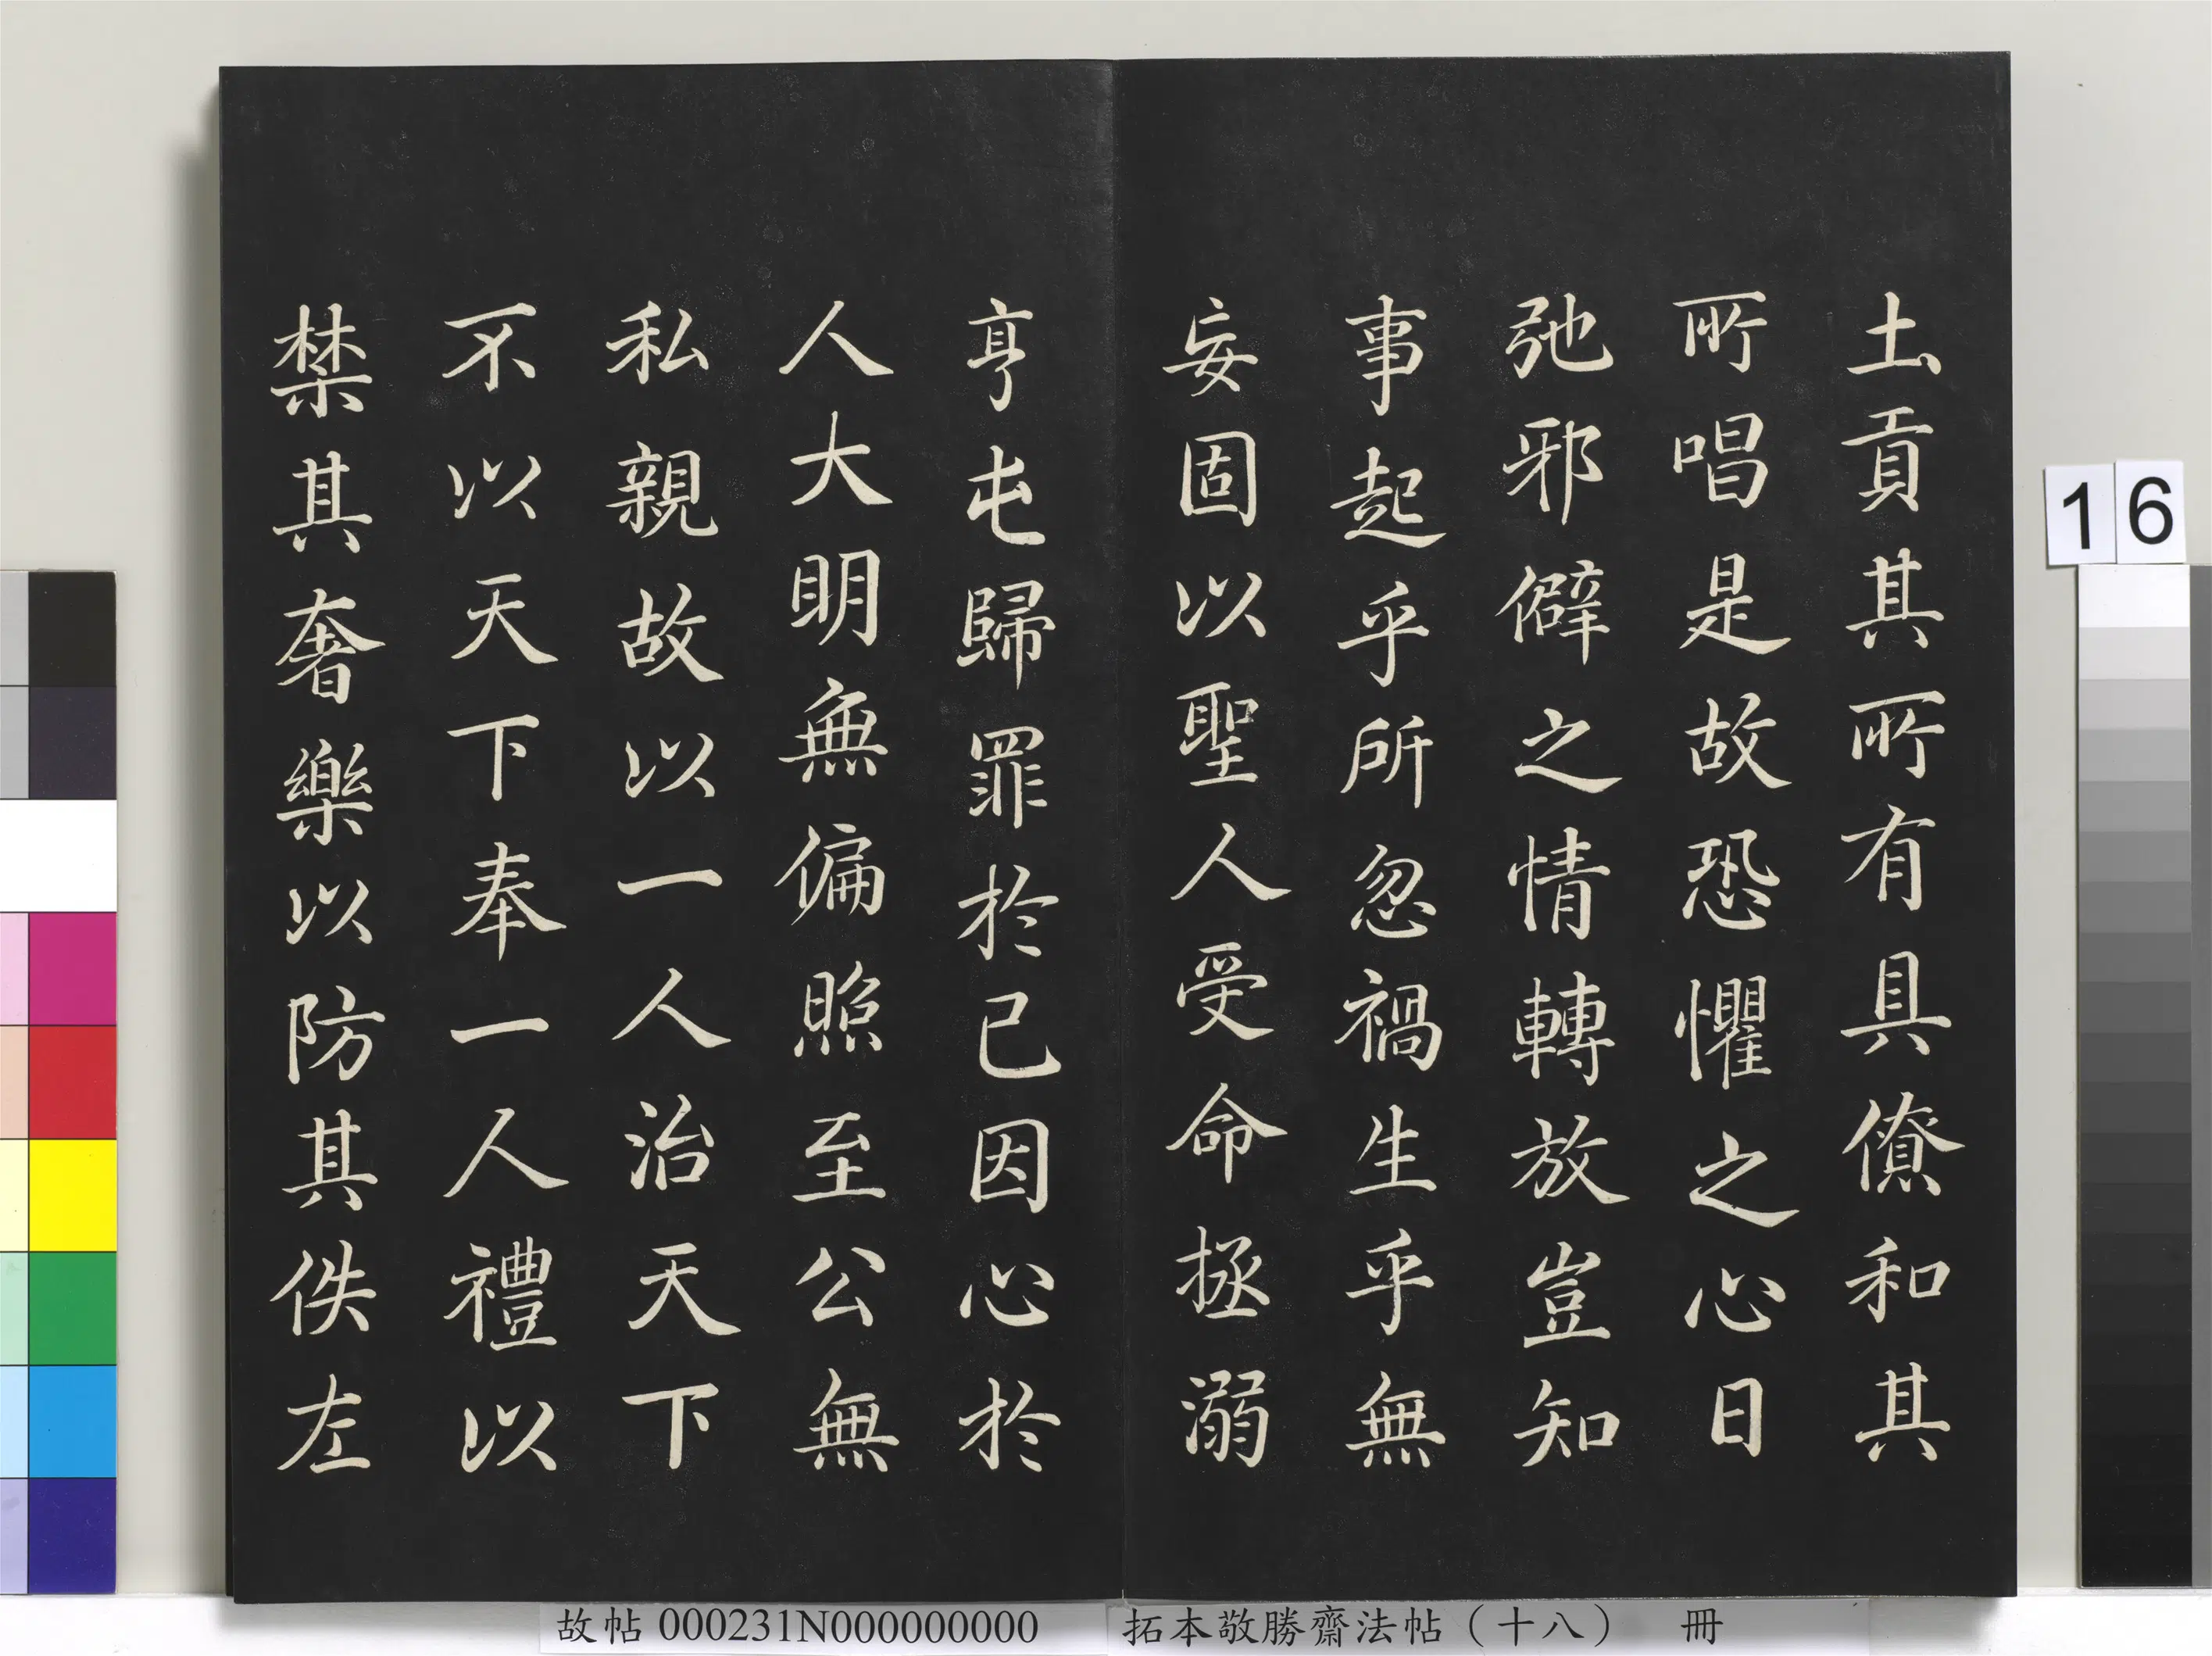 土貢其所有具僚和其
所唱是故恐懼之心日
弛邪僻之情轉放豈知
事起乎所忽禍生乎無
妄固以聖人受命拯溺
亨屯歸罪於已因心於
人大明無偏照至公無
私親故以一人治天下
不以天下奉一人禮以
禁其奢樂以防其佚左
16
故帖 000231N000000000 拓本敬勝齋法帖（十八） 冊